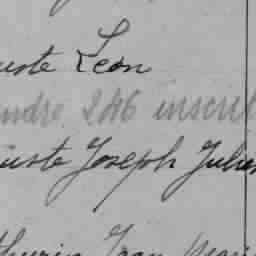 uste Léon
endre 246 inscrit
uste Joseph Julien
thurin Jean Marie